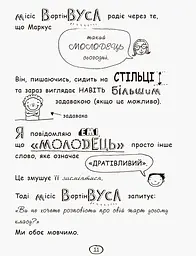 місіс ВортінВУСА радіє через те,
що Маркус такий
МОЛОДЕЦЬ
сьогодні.
Він, пишаючись, сидить на СТІЛЬЦІ
та зараз виглядає НАВІТЬ більшим
задавакою (якщо це можливо).
задавака
Я повідомляю ЕМІ,
що «МОЛОДЕЦЬ» просто інше
слово, яке означає
«ДРАТІВЛИВИЙ».
Це змушує її засміятися.
Тоді місіс ВортінВУСА запитує:
«Ви не хочете розповісти про свій жарт усьому
класу?»
Ми обоє мовчимо.
11